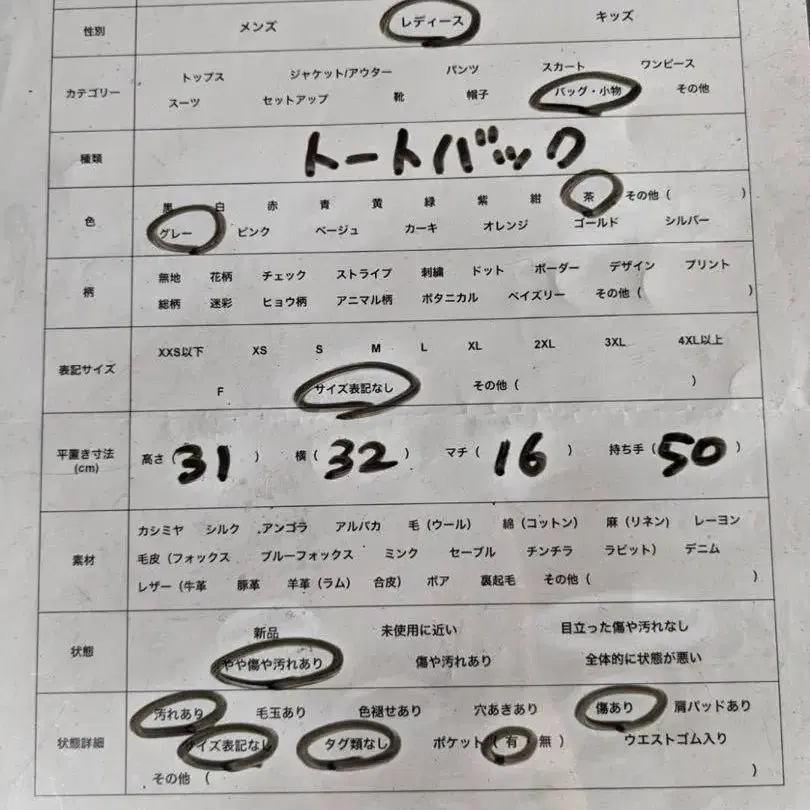 性別 メンズ レディース キッズ
カテゴリー
トップス ジャケット/アウター パンツ スカート ワンピース
スーツ セットアップ 靴 帽子 バッグ・小物 その他
種類 トートバック
色
黒 白 赤 青 黄 緑 紫 紺 茶 その他 ( )
グレー ピンク ベージュ カーキ オレンジ ゴールド シルバー
柄
無地 花柄 チェック ストライプ 刺繍 ドット ボーダー デザイン プリント
総柄 迷彩 ヒョウ柄 アニマル柄 ボタニカル ペイズリー その他 ( )
表記サイズ
XXS以下 XS S M L XL 2XL 3XL 4XL以上
F サイズ表記なし その他 ( )
平置き寸法
(cm)
高さ ( 31 ) 横 ( 32 ) マチ ( 16 ) 持ち手 ( 50 )
素材
カシミヤ シルク アンゴラ アルパカ 毛 (ウール) 綿 (コットン) 麻 (リネン) レーヨン
毛皮 (フォックス ブルーフォックス ミンク セーブル チンチラ ラビット) デニム
レザー (牛革 豚革 羊革 (ラム) 合皮) ボア 裏起毛 その他 ( )
状態
新品 未使用に近い 目立った傷や汚れなし
やや傷や汚れあり 傷や汚れあり 全体的に状態が悪い
状態詳細
汚れあり 毛玉あり 色褪せあり 穴あきあり 傷あり 肩パッドあり
サイズ表記なし タグ類なし ポケット ( 有・無 ) ウエストゴム入り
その他 ( )